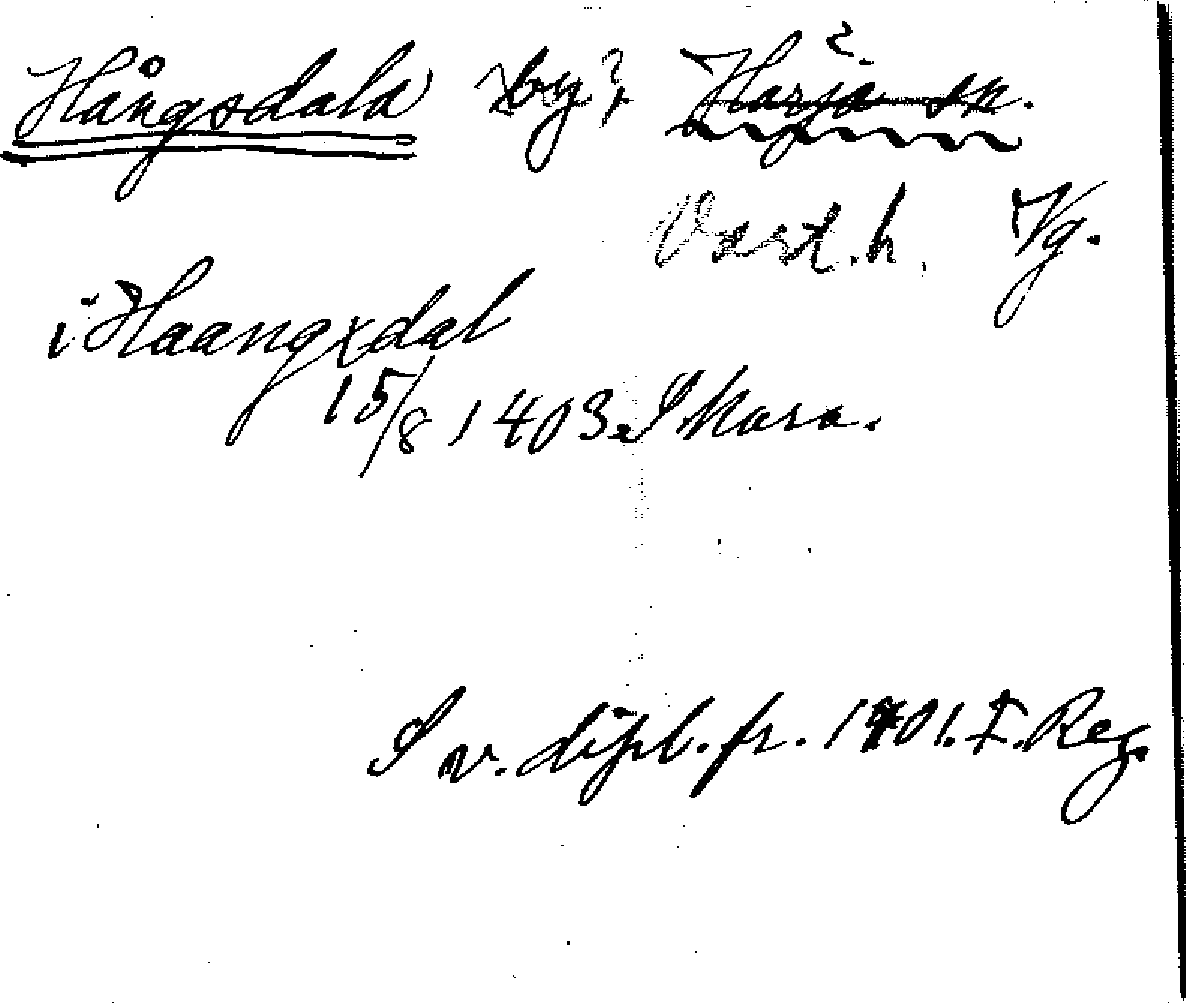 Hångsdala by? Harja sn.
Vart.h. Vg.
i Haangxdal
15/8 1403. Skara.
Sv. dipl. fr. 1401. I. Reg.